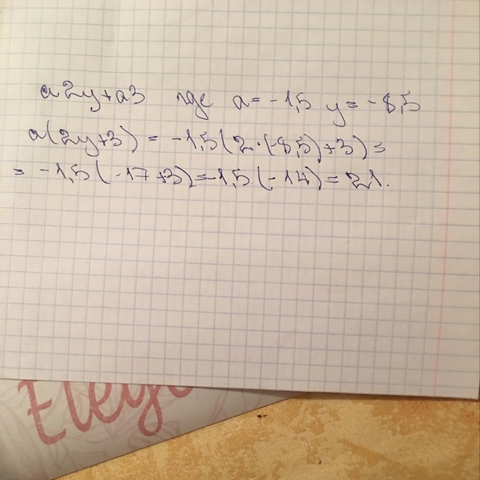 a2y+a3 где a=-1,5 y=-8,5
a(2y+3)=-1,5(2·(-8,5)+3)=
=-1,5(-17+3)=-1,5(-14)=21.